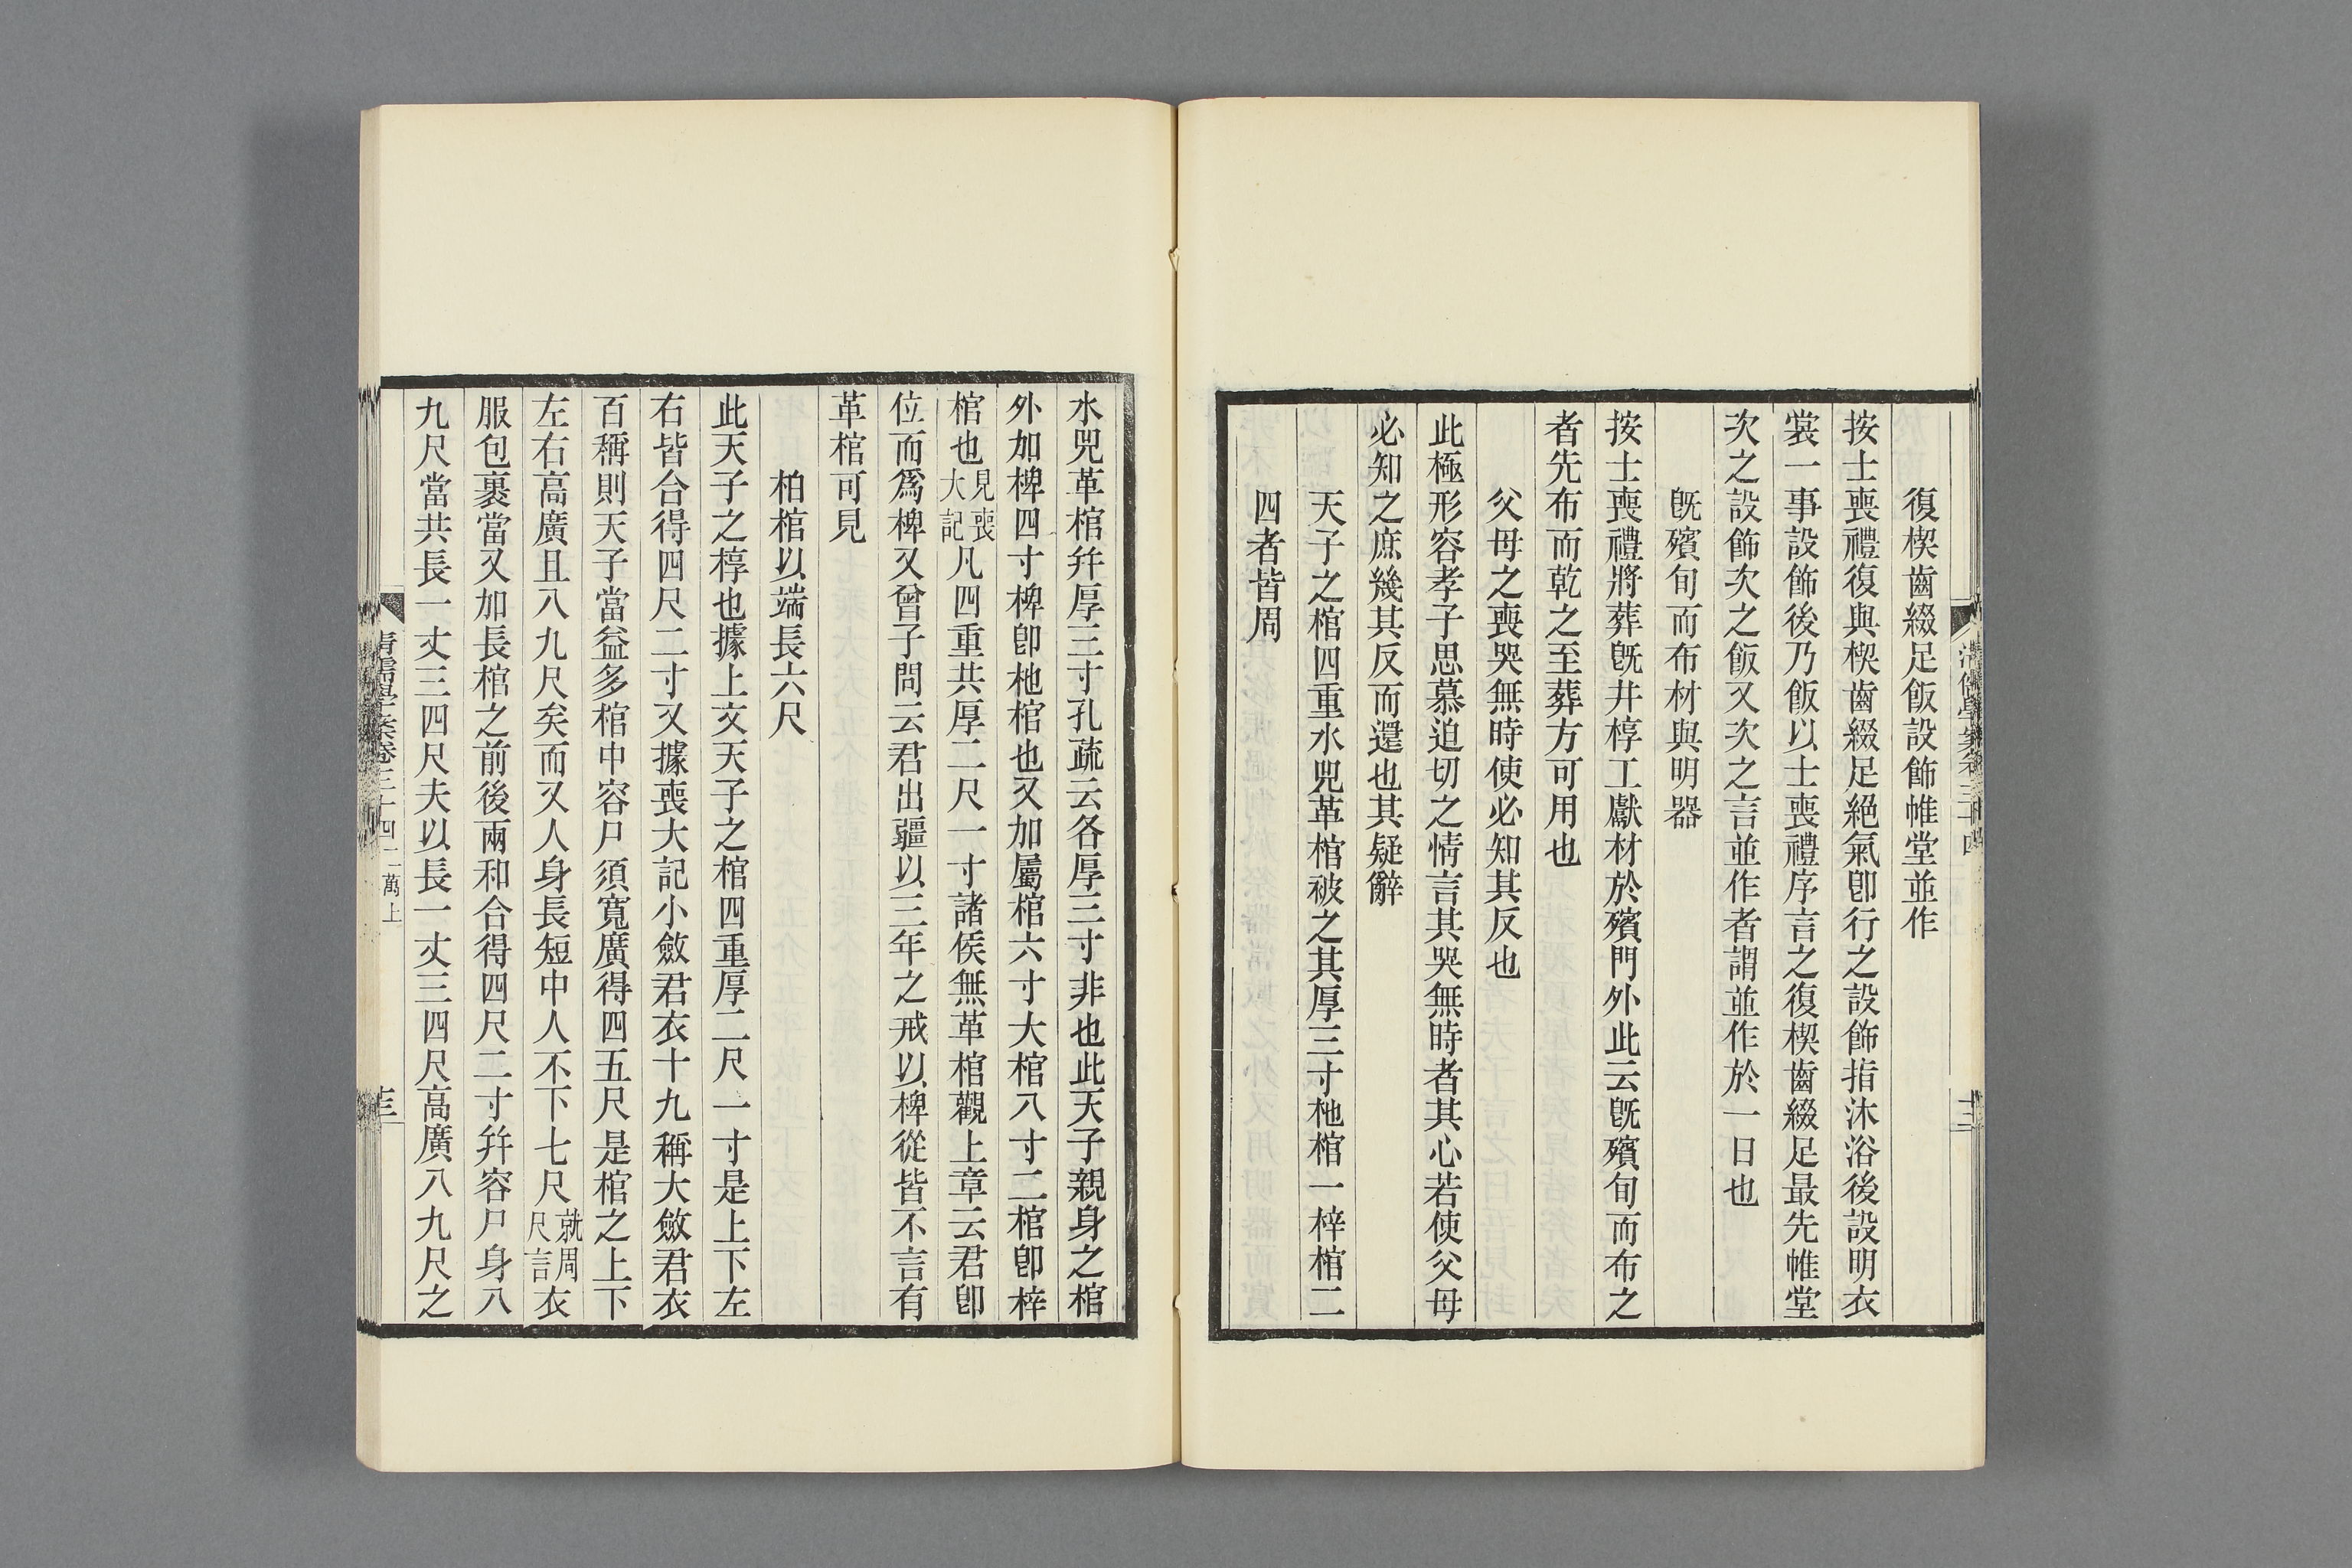 復楔齒綴足飯設飾帷堂並作
按士喪禮復與楔齒綴足絕氣卽行之設飾指沐浴後設明衣
裳一事設飾後乃飯以士喪禮序言之復楔齒綴足最先帷堂
次之設飾次之飯又次之言並作者謂並作於一日也
旣殯旬而布材與明器
按士喪禮將葬旣井椁工獻材於殯門外此云旣殯旬而布之
者先布而乾之至葬方可用也
父母之喪哭無時使必知其反也
此極形容孝子思慕迫切之情言其哭無時者其心若使父母
必知之庶幾其反而還也其疑辭
天子之棺四重水兕革棺被之其厚三寸杝棺一梓棺二
四者皆周
水兕革棺幷厚三寸孔疏云各厚三寸非也此天子親身之棺
外加椑四寸椑卽杝棺也又加屬棺六寸大棺八寸二棺卽梓
棺也見喪大記凡四重共厚二尺一寸諸侯無革棺觀上章云君卽
位而爲椑又曾子問云君出疆以三年之戒以椑從皆不言有
革棺可見
柏棺以端長六尺
此天子之椁也據上文天子之棺四重厚二尺一寸是上下左
右皆合得四尺二寸又據喪大記小斂君衣十九稱大斂君衣
百稱則天子當益多棺中容尸須寬廣得四五尺是棺之上下
左右高廣且八九尺矣而又人身長短中人不下七尺就周尺言衣
服包裹當又加長棺之前後兩和合得四尺二寸幷容尸身八
九尺當共長一丈三四尺夫以長一丈三四尺高廣八九尺之
清儒學案卷三十四 二萬上